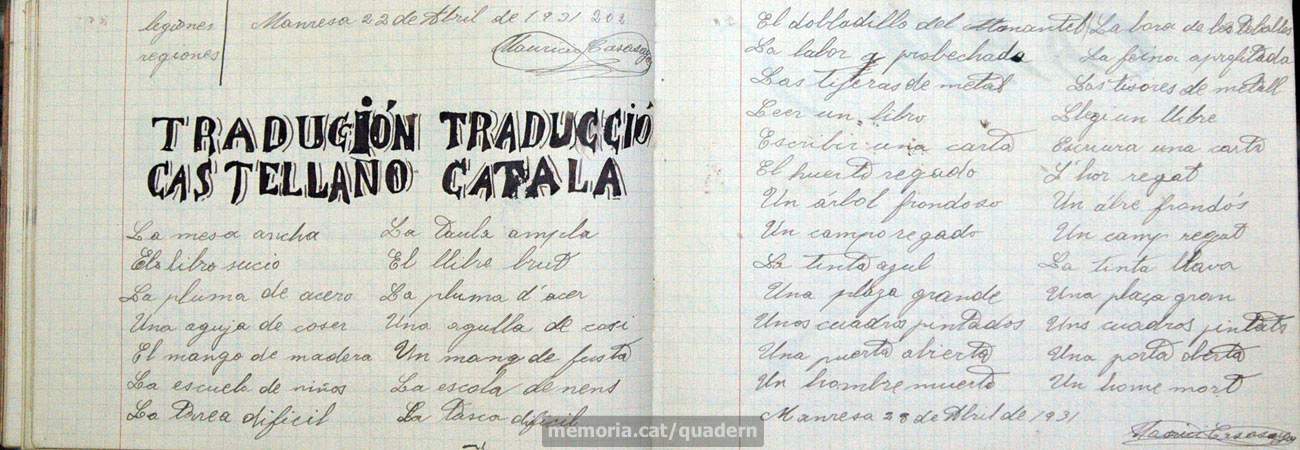 legiones Manresa 22 de Abril de 1931 208
regiones Mauricio
TRADUCIÓN TRADUCCIÓ
CASTELLANO CATALA
La mesa ancha La Taula ampla
El libro sucio El llibre brut
La pluma de acero La pluma d'acer
Una aguja de coser Una agulla de cosi
El mango de madera Un mang de fusta
La escuela de niños La escola de nens
La Tarea dificil La Tasca dificil
El dobladillo del La bora de les
La labor a probechada La feina aprofitada
Las tijeras de metal Las tisores de metall
Leer un libro Llegi un llibre
Escribir una carta Escriura una carta
El huerto regado L'hor regat
Un árbol frondoso Un álbre frondós
Un campo regado Un camp regat
La tinta azul La tinta blava
Una plaza grande Una plaça gran
Unos cuadros pintados Uns cuadros pintats
Una puerta abierta Una porta oberta
Un hombre muerto Un home mort
Manresa 23 de Abril de 1931
memoria.cat/quadern